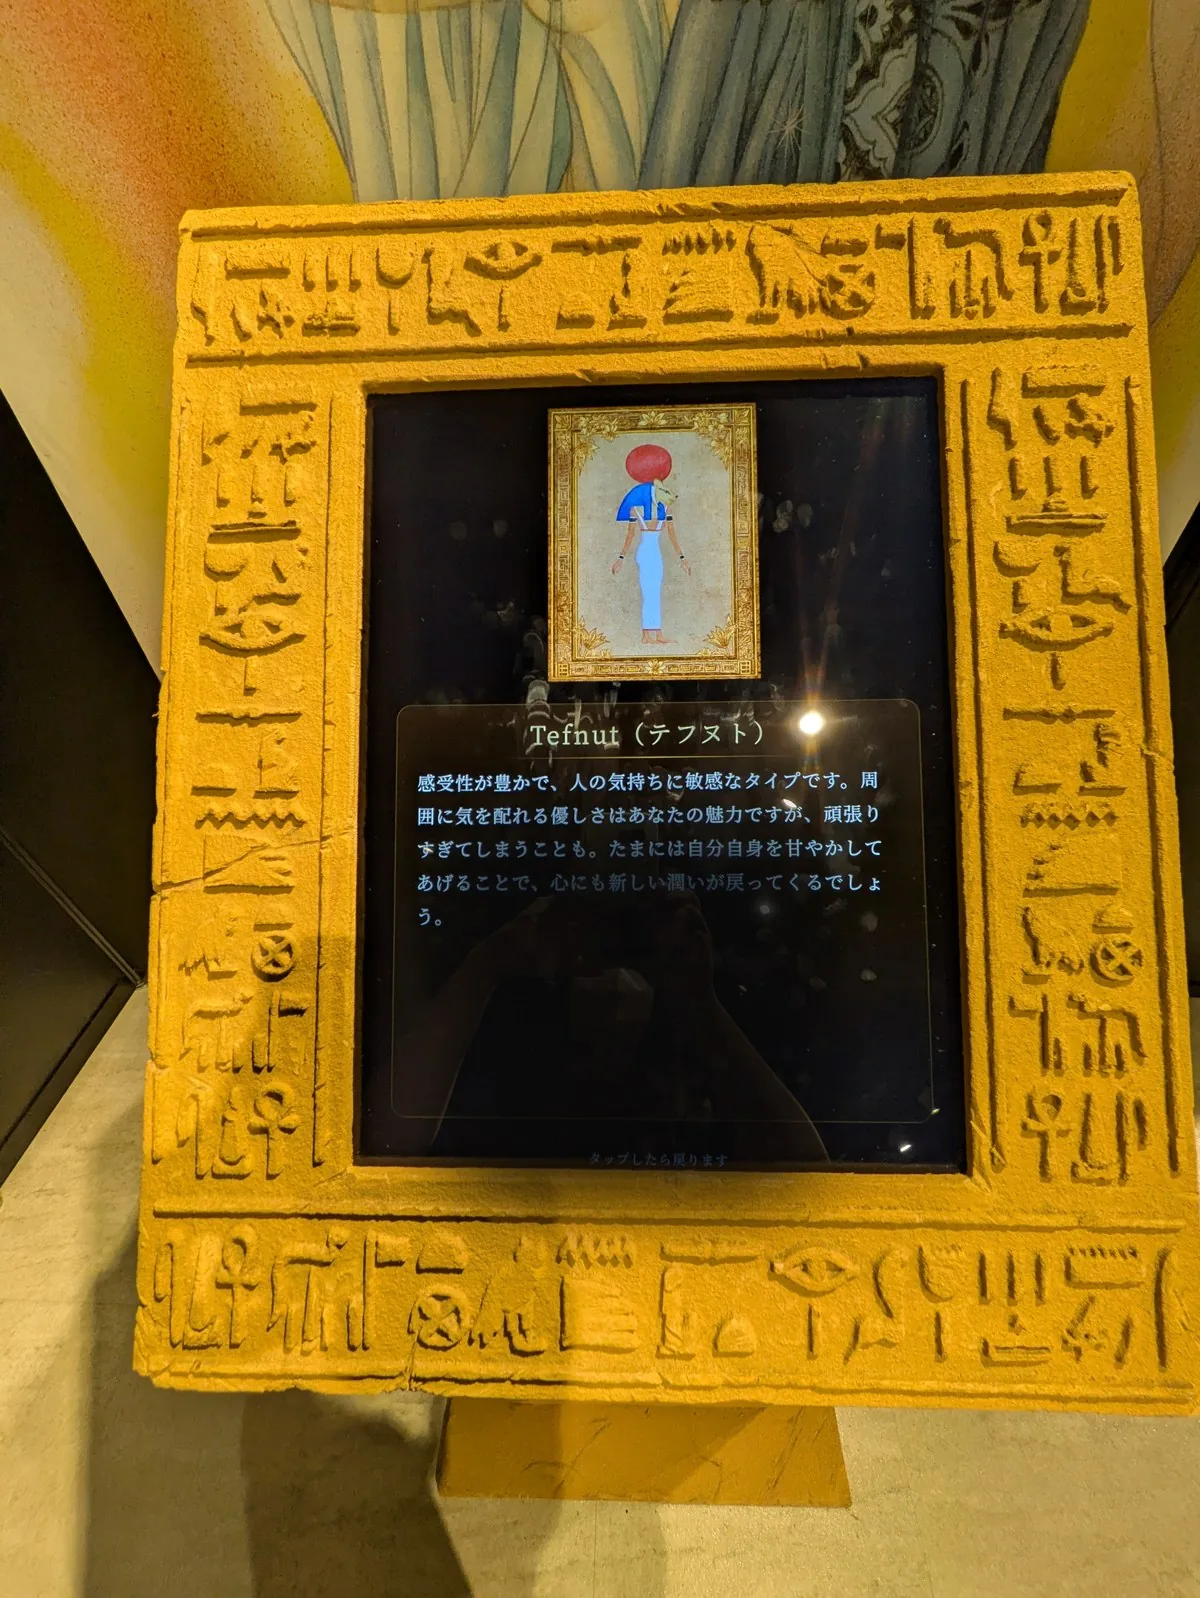 Tefnut（テフヌト）
感受性が豊かで、人の気持ちに敏感なタイプです。周
囲に気を配れる優しさはあなたの魅力ですが、頑張り
すぎてしまうことも。たまには自分自身を甘やかして
あげることで、心にも新しい潤いが戻ってくるでしょ
う。
タップしたら戻ります